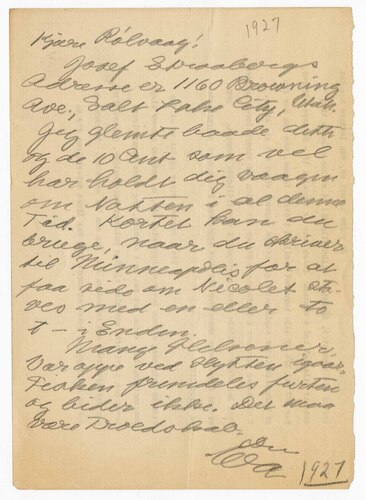 1927
Kjære Rølvaag!
Josef Straabergs
Adresse er 1160 Browning
Ave., Salt Lake City, Utah.
Jeg glemte baade dette
og de 10 Cent som vel
har holdt dig vaagen
om Natten i al denne
Tid. Kortet kan du
bruge, naar du skriver
til Minneapolis for at
faa vide om Nicolet
ves med en eller to
t – i Enden.
Mang Pilsener,
Var oppe ved Hytten igaar.
Fisken fremdeles furten
og bider ikke. Det maa
være Trods
Din
1927